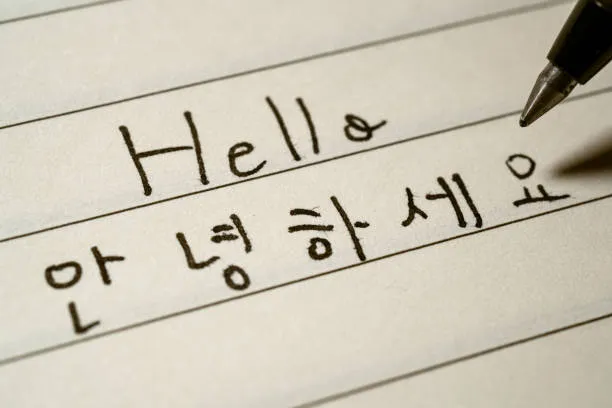 Hello
안녕하세요